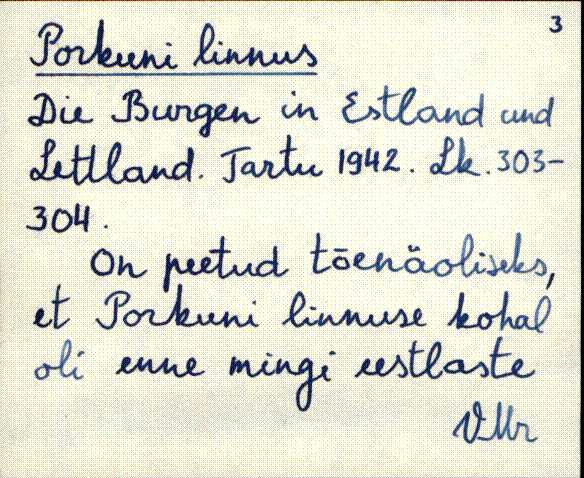 3
Porkuni linnus
Die Burgen in Estland und
Lettland. Tartu 1942. Lk. 303-
304.
On peetud tõenäoliseks,
et Porkuni linnuse kohal
oli enne mingi eestlaste